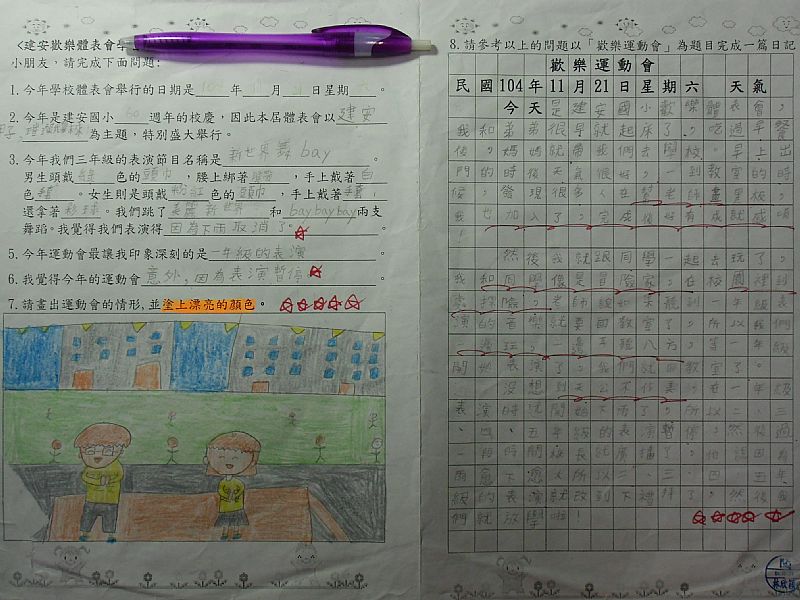 <建安歡樂體表會學
小朋友，請完成下面問題:
1. 今年學校體表會舉行的日期是 年 月 日星期 。
2. 今年是建安國小 60 週年的校慶，因此本屆體表會以 建安
為主題，特別盛大舉行。
3. 今年我們三年級的表演節目名稱是 新世界舞 bay 。
男生頭戴 綠 色的 頭巾 ，腰上綁著 ，手上戴著 白
色 。女生則是頭戴 粉紅 色的 頭巾 ，手上戴著 ，
還拿著 彩球 。我們跳了 美麗新世界 和 baybaybay 兩支
舞蹈。我覺得我們表演得 因為下雨取消了。
5. 今年運動會最讓我印象深刻的是 一年級的表演
6. 我覺得今年的運動會 意外，因為表演暫停。
7. 請畫出運動會的情形，並塗上漂亮的顏色。
8. 請參考以上的問題以「歡樂運動會」為題目完成一篇日記
歡樂運動會
民國104年11月21日星期六 天氣
今天是建安國小歡樂體表會，
我和弟弟很早就起床了，吃過早餐
後，媽媽就帶我們去學校。早上出
門的時後天氣很好。一到教室的時
候，發現很多人在幫老師畫黑板，
我也加入了。完成後好有成就感唷
！
然後我就跟同學一起去玩了。
我和同學像是冒險家，在校園裡到
處探險。老師說如果聽到一年級表
演的音樂就要回教室了，所以我們
一邊玩，一邊耳聽八方，等一年級
開始表演了，我們就回教室了。
沒想到天公不作美，在一年級
表演時就開始下雨了，所以二、三
、四、五年級的表演暫停，然後過
一段時間校長就廣播了，他說因為
雨愈下愈大所以二、三、四、五年
級的表演就改到下禮拜了，然後我
們就放學啦！